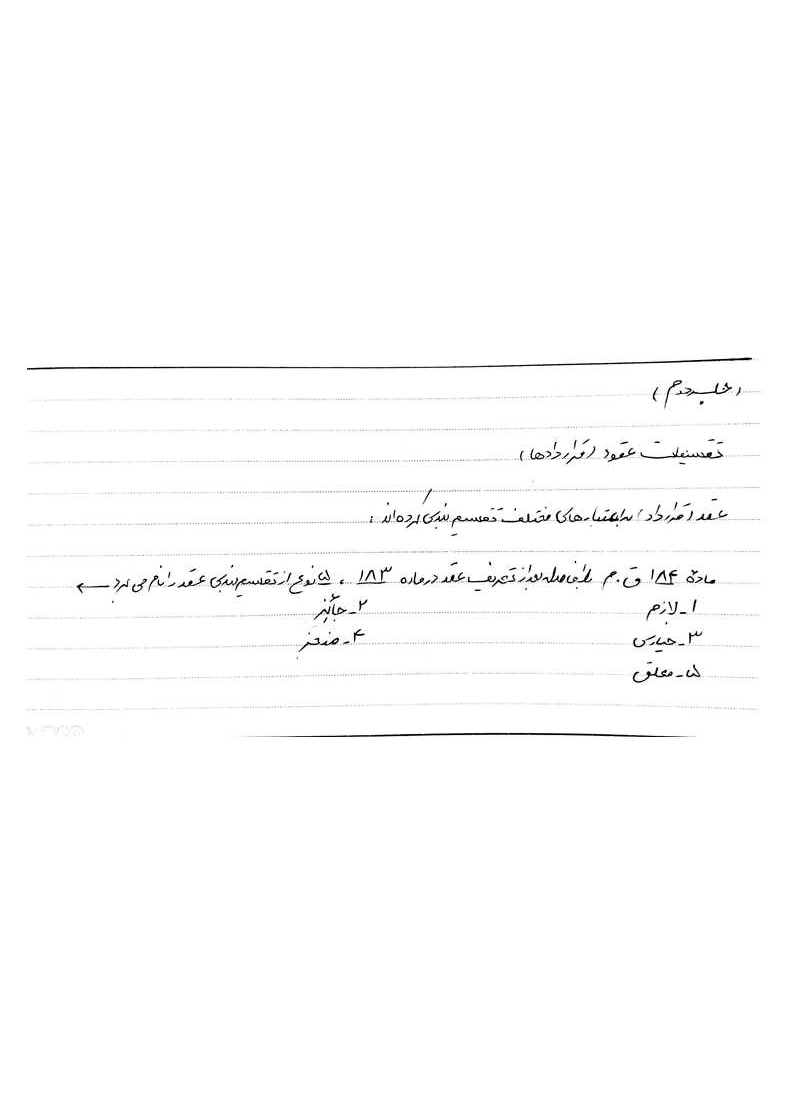 (جلسه دوم)
تقسیمات عقود (قراردادها)
عقد (قرارداد) به اعتبارهای مختلف تقسیم بندی کرده‌اند :
مادهٔ ۱۸۴ ق.م بلافاصله بعد از تعریف عقد در ماده ۱۸۳ ، ۵ نوع از تقسیم بندی عقد را نام می برد ←
۱ـ لازم ۲ـ جائز
۳ـ خیاری ۴ـ منجز
۵ـ معلق